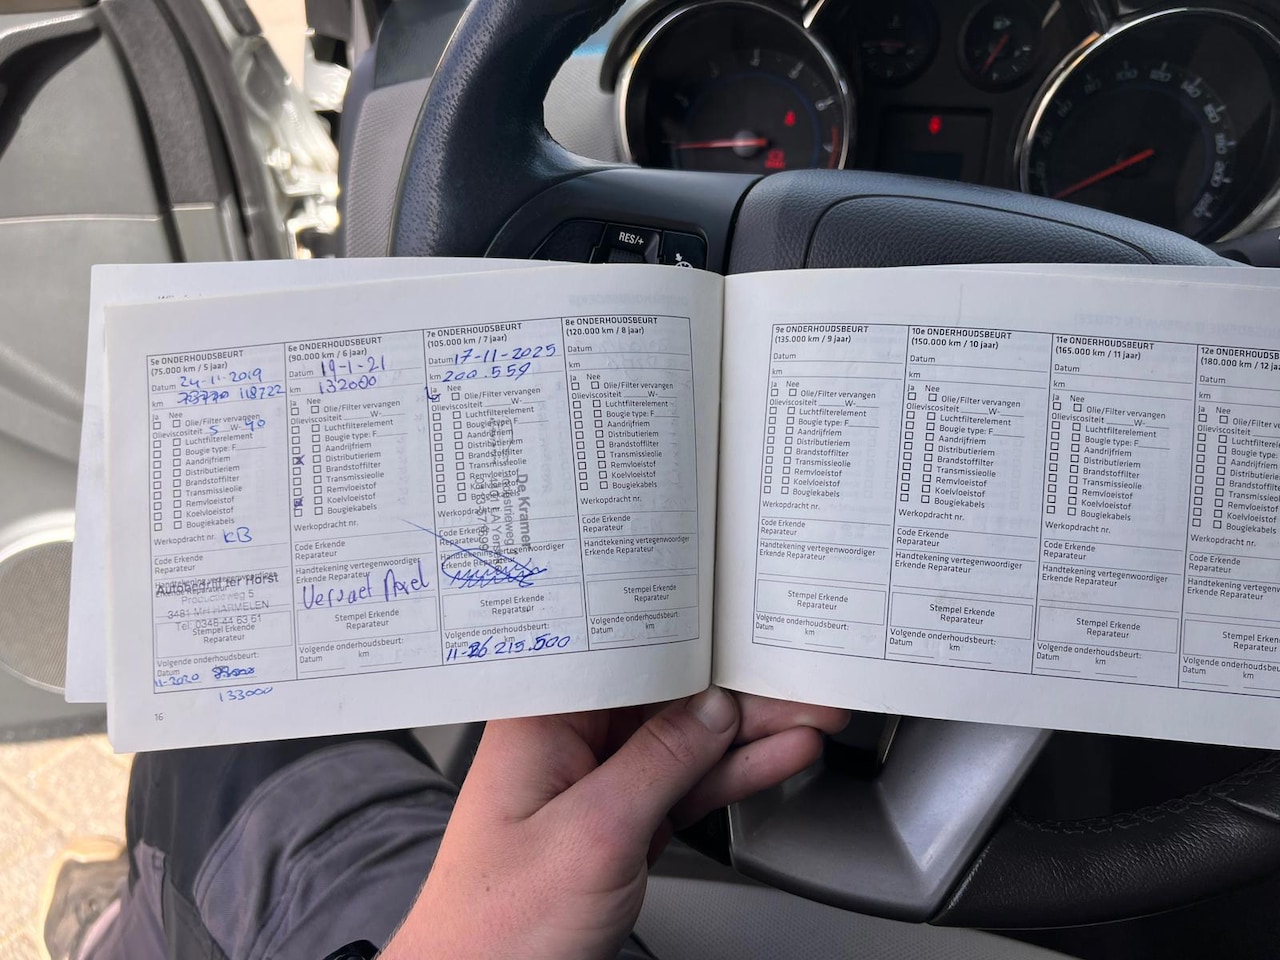 RES/+
5e ONDERHOUDSBEURT
(75.000 km / 5 jaar)
Datum 24-11-2019
km 118722
Ja Nee
Olie/Filter vervangen
Olieviscositeit 5 W- 40
Luchtfilterelement
Bougie type: F
Aandrijfriem
Distributieriem
Brandstoffilter
Transmissieolie
Remvloeistof
Koelvloeistof
Bougiekabels
Werkopdracht nr.
KB
Code Erkende
Reparateur
Handtekening vertegenwoordiger
Erkende Reparateur
Autobedrijf ter Horst
Produktieweg 5
3481 MH HARMELEN
Tel. 0348-44 63 61
Stempel Erkende
Reparateur
Volgende onderhoudsbeurt:
Datum km
11-2020
133000
16
6e ONDERHOUDSBEURT
(90.000 km / 6 jaar)
Datum 19-1-21
km 132000
Ja Nee
Olie/Filter vervangen
Olieviscositeit W-
Luchtfilterelement
Bougie type: F
Aandrijfriem
Distributieriem
Brandstoffilter
Transmissieolie
Remvloeistof
Koelvloeistof
Bougiekabels
Werkopdracht nr.
Code Erkende
Reparateur
Handtekening vertegenwoordiger
Erkende Reparateur
Stempel Erkende
Reparateur
Volgende onderhoudsbeurt:
Datum km
7e ONDERHOUDSBEURT
(105.000 km / 7 jaar)
Datum 17-11-2025
km 200.559
Ja Nee
Olie/Filter vervangen
Olieviscositeit W-
Luchtfilterelement
Bougie type: F
Aandrijfriem
Distributieriem
Brandstoffilter
Transmissieolie
Remvloeistof
Koelvloeistof
Bougiekabels
Werkopdracht nr.
De Kramer
Code Erkende
Reparateur
Handtekening vertegenwoordiger
Erkende Reparateur
Stempel Erkende
Reparateur
Volgende onderhoudsbeurt:
Datum km
11-26 215.500
8e ONDERHOUDSBEURT
(120.000 km / 8 jaar)
Datum
km
Ja Nee
Olie/Filter vervangen
Olieviscositeit W-
Luchtfilterelement
Bougie type: F
Aandrijfriem
Distributieriem
Brandstoffilter
Transmissieolie
Remvloeistof
Koelvloeistof
Bougiekabels
Werkopdracht nr.
Code Erkende
Reparateur
Handtekening vertegenwoordiger
Erkende Reparateur
Stempel Erkende
Reparateur
Volgende onderhoudsbeurt:
Datum km
9e ONDERHOUDSBEURT
(135.000 km / 9 jaar)
Datum
km
Ja Nee
Olie/Filter vervangen
Olieviscositeit W-
Luchtfilterelement
Bougie type: F
Aandrijfriem
Distributieriem
Brandstoffilter
Transmissieolie
Remvloeistof
Koelvloeistof
Bougiekabels
Werkopdracht nr.
Code Erkende
Reparateur
Handtekening vertegenwoordiger
Erkende Reparateur
Stempel Erkende
Reparateur
Volgende onderhoudsbeurt:
Datum km
10e ONDERHOUDSBEURT
(150.000 km / 10 jaar)
Datum
km
Ja Nee
Olie/Filter vervangen
Olieviscositeit W-
Luchtfilterelement
Bougie type: F
Aandrijfriem
Distributieriem
Brandstoffilter
Transmissieolie
Remvloeistof
Koelvloeistof
Bougiekabels
Werkopdracht nr.
Code Erkende
Reparateur
Handtekening vertegenwoordiger
Erkende Reparateur
Stempel Erkende
Reparateur
Volgende onderhoudsbeurt:
Datum km
11e ONDERHOUDSBEURT
(165.000 km / 11 jaar)
Datum
km
Ja Nee
Olie/Filter vervangen
Olieviscositeit W-
Luchtfilterelement
Bougie type: F
Aandrijfriem
Distributieriem
Brandstoffilter
Transmissieolie
Remvloeistof
Koelvloeistof
Bougiekabels
Werkopdracht nr.
Code Erkende
Reparateur
Handtekening vertegenwoordiger
Erkende Reparateur
Stempel Erkende
Reparateur
Volgende onderhoudsbeurt:
Datum km
12e ONDERHOUDSB
(180.000 km / 12 ja
Datum
km
Ja Nee
Olie/Filter
Olieviscositeit
Luchtfilterel
Bougie type
Aandrijfriem
Distributier
Brandstoffi
Transmissie
Remvloeist
Koelvloeist
Bougiekab
Werkopdracht nr.
Code Erkende
Reparateur
Handtekening verte
Erkende Reparateur
Stempel Erken
Reparateu
Volgende onderho
Datum